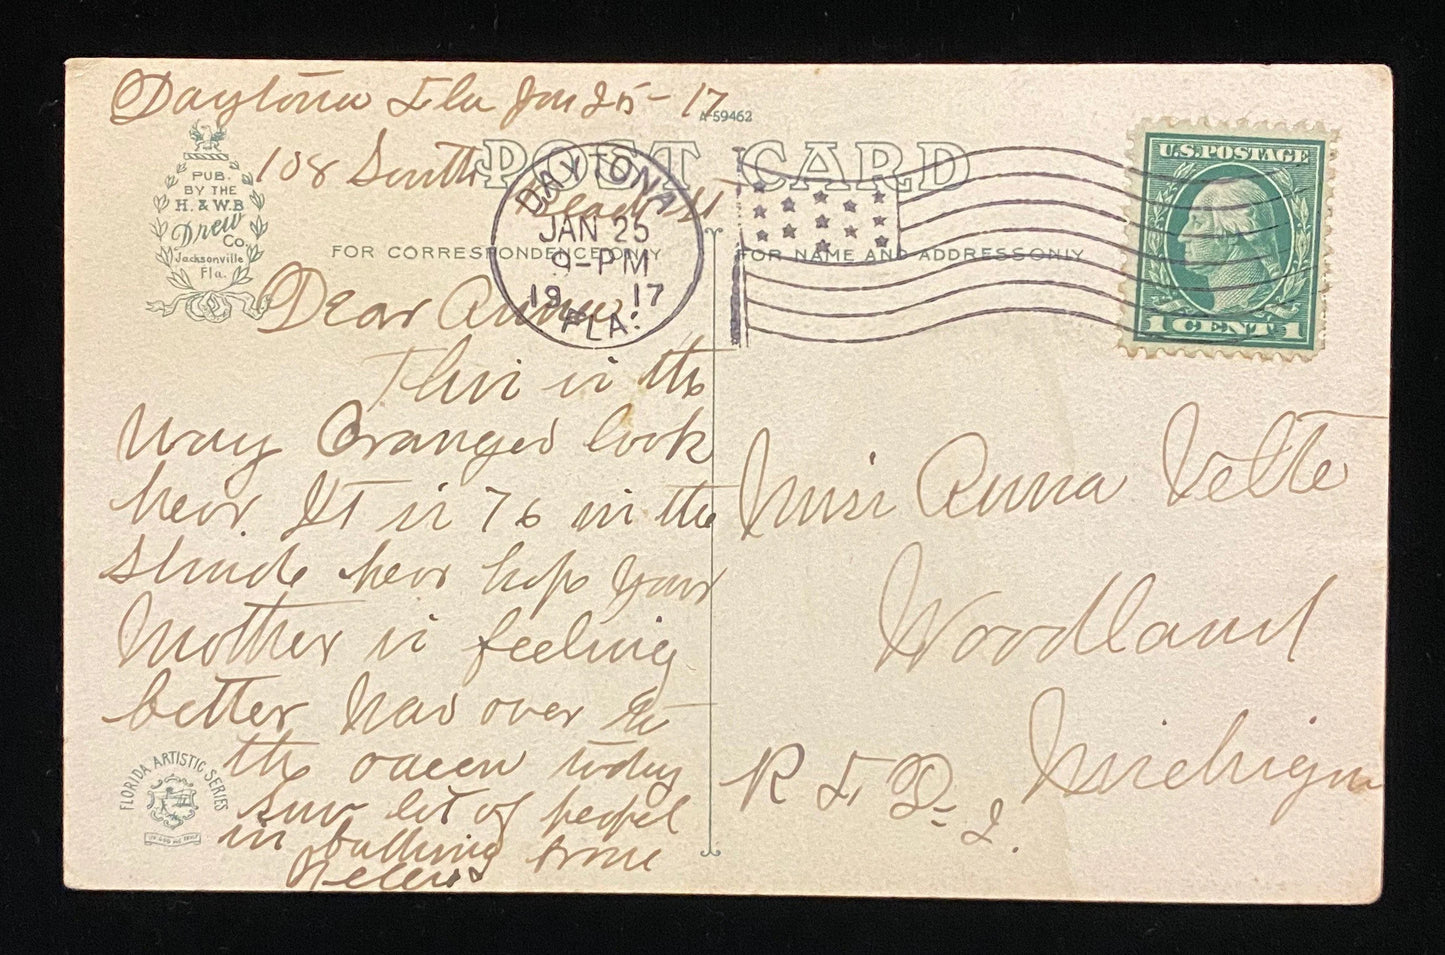 Daytona Fla Jan 25-17
A-59462
108 South
Beach St
POST CARD
PUB.
BY THE
H. & W.B
Drew
Co.
Jacksonville
Fla.
DAYTONA
JAN 25
9-PM
1917
FLA.
U.S. POSTAGE
1 CENT 1
FOR CORRESPONDENCE ONLY
FOR NAME AND ADDRESS ONLY
Dear Anna
This is the
way Oranges look
hear. It is 76 in the
shade hear hope your
Mother is feeling
better was over to
the oacen today
saw lot of peopel
in bathing from
Helen
FLORIDA ARTISTIC SERIES
Miss Anna Velte
Woodland
Michigan
R F D- 2.